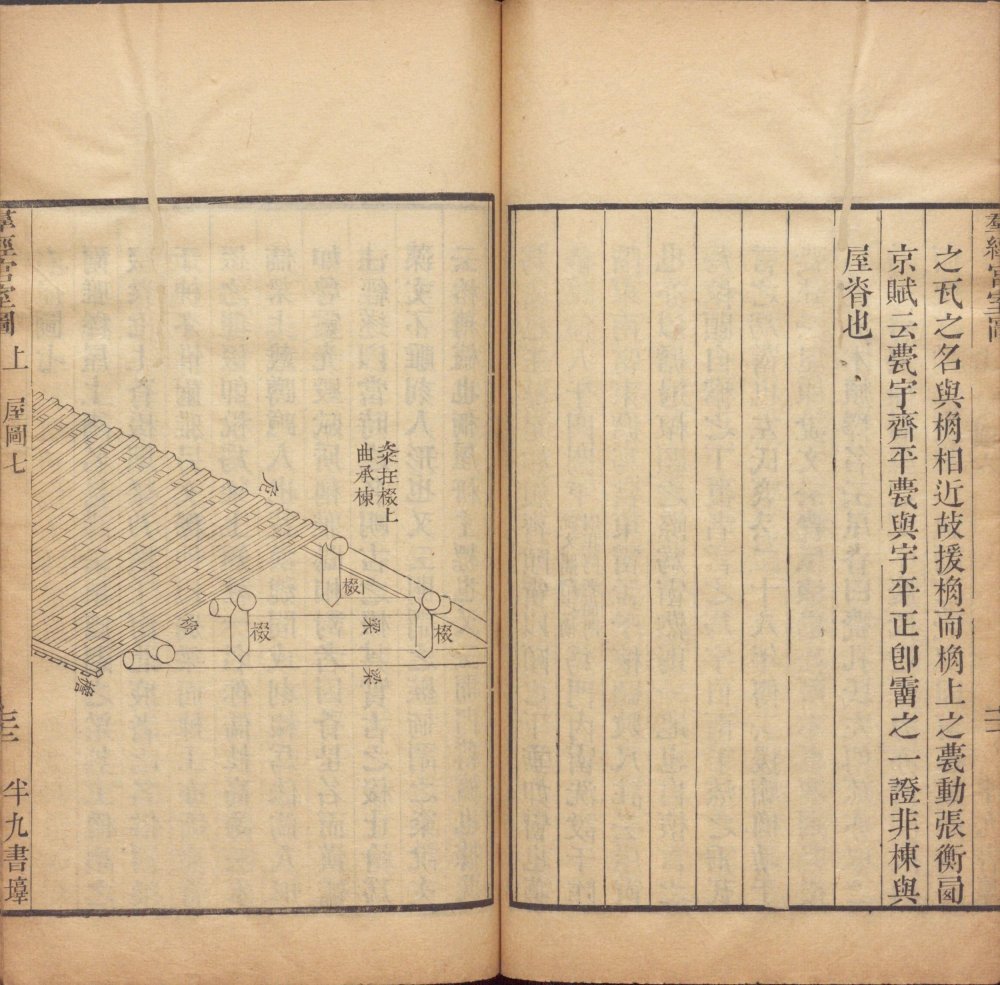 羣經宮室圖
之瓦之名與桷相近故援桷而桷上之甍動張衡
京賦云甍宇齊平甍與宇平正卽霤之一證非棟與
屋脊也
桼在棳上
曲承棟
危
棳
棳
棳
梁
梁
檐
羣經宮室圖 上 屋圖七
半九書塾